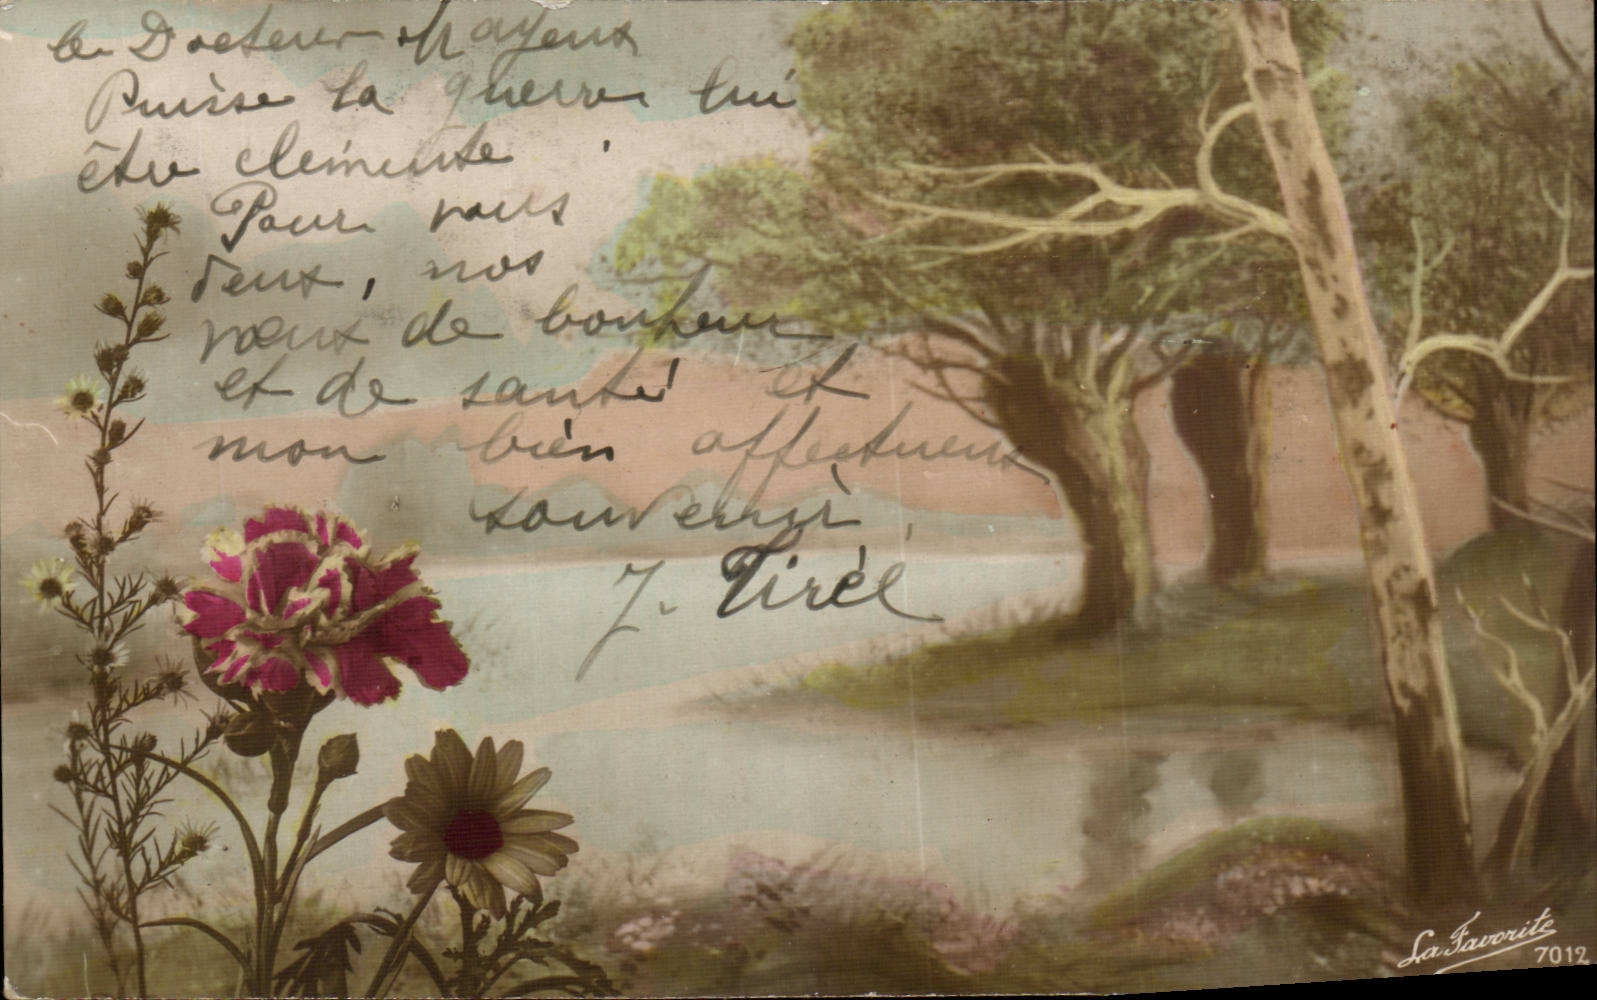 le Docteur Mayeux
Puisse la guerre lui
être clémente.
Pour vous
deux, nos
vœux de bonheur
et de santé et
mon bien affectueux
souvenir,
J. Tirél
La Favorite
7012